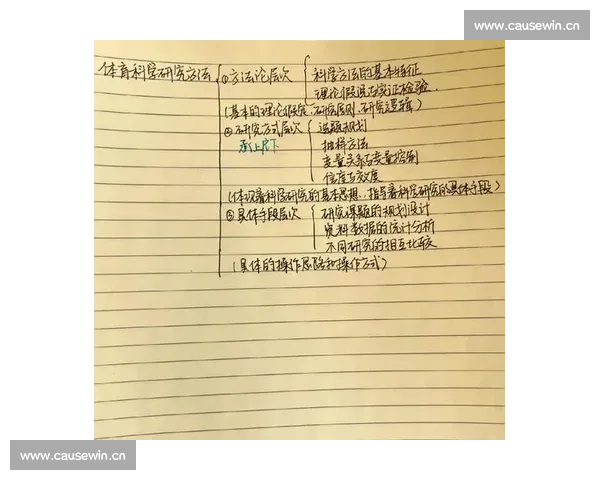 www.causewin.cn
体育科学研究方法 ①方法论层次 科学方法的基本特征
理论假设与实证检验
(基本的理论假定、研究原则、研究逻辑)
②研究方式层次 选题规划
承上启下 抽样方法
变量关系与变量控制
信度与效度
(体现着科学研究的基本思想、指导着科学研究的具体手段)
③具体手段层次 研究课题的规划设计
资料数据的统计分析
不同研究的相互比较
(具体的操作思路和操作方式)
www.causewin.cn